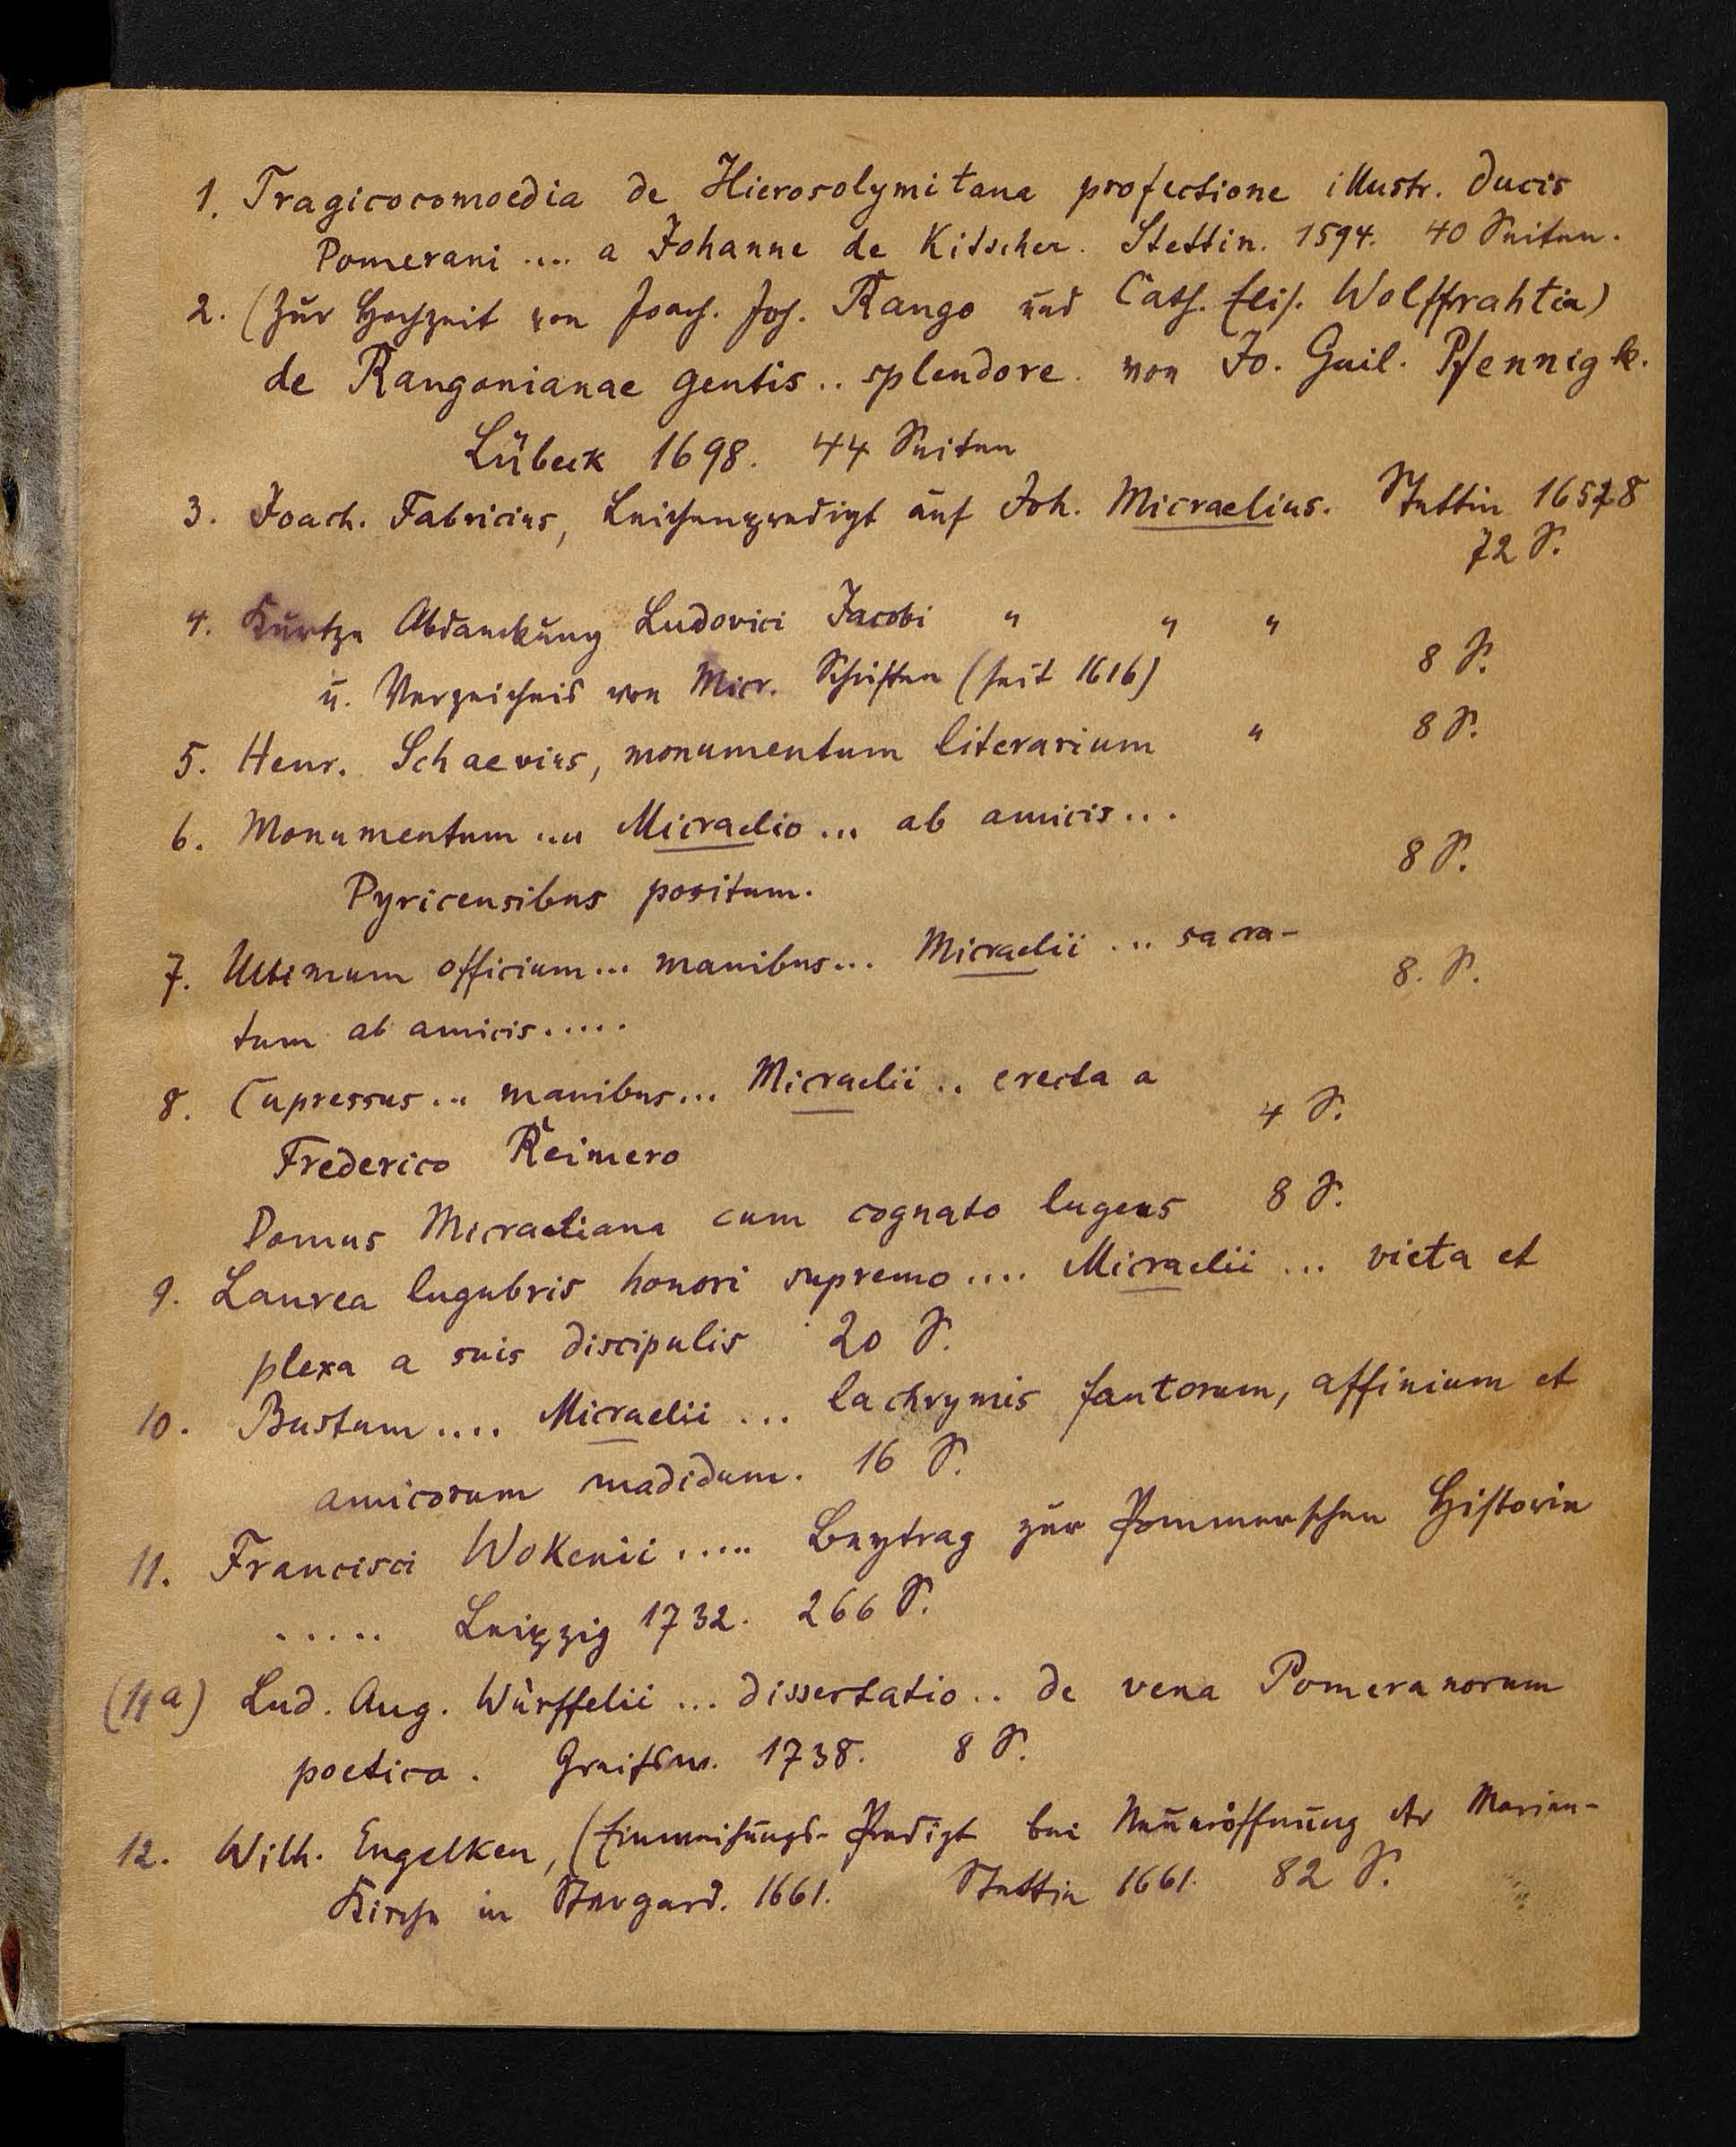 1. Tragicocomoedia de Hierosolymitana profectione illustr. ducis
Pomerani .... a Johanne de Kitscher. Stettin. 1594. 40 Seiten.
2. (Zur Hochzeit von Joach. Joh. Rango und Cath. Elis. Wolffrahtia)
de Rangonianae gentis .. splendore. von Jo. Guil. Pfennigk.
Lübeck 1698. 44 Seiten
3. Joach. Fabricius, Leichenpredigt auf Joh. Micraelius. Stettin 1658
72 S.
4. Kurtze Abdanckung Ludovici Jacobi " " "
u. Verzeichnis von Micr. Schriften (seit 1616) 8 S.
5. Henr. Schaevius, monumentum literarium " 8 S.
6. Monumentum ... Micraelio ... ab amicis ...
Pyricensibus positum. 8 S.
7. Ultimum officium ... manibus ... Micraelii ... sacra-
tum ab amicis ..... 8. S.
8. Cupressus ... manibus ... Micraelii .. erecta a
Frederico Reimero 4 S.
Domus Micraeliana cum cognato lugens 8 S.
9. Laurea lugubris honori supremo .... Micraelii ... vieta et
plexa a suis discipulis 20 S.
10. Bustum .... Micraelii ... lachrymis fautorum, affinium et
amicorum madidum. 16 S.
11. Francisci Wokenii ..... Beytrag zur Pommerschen Historie
..... Leipzig 1732. 266 S.
(11a) Lud. Aug. Würffelii ... dissertatio .. de vena Pomeranorum
poetica. Greifsw. 1738. 8 S.
12. Wilh. Engelken, (Einweihungs-Predigt bei Neueröffnung der Marien-
Kirche in Stargard. 1661. Stettin 1661. 82 S.